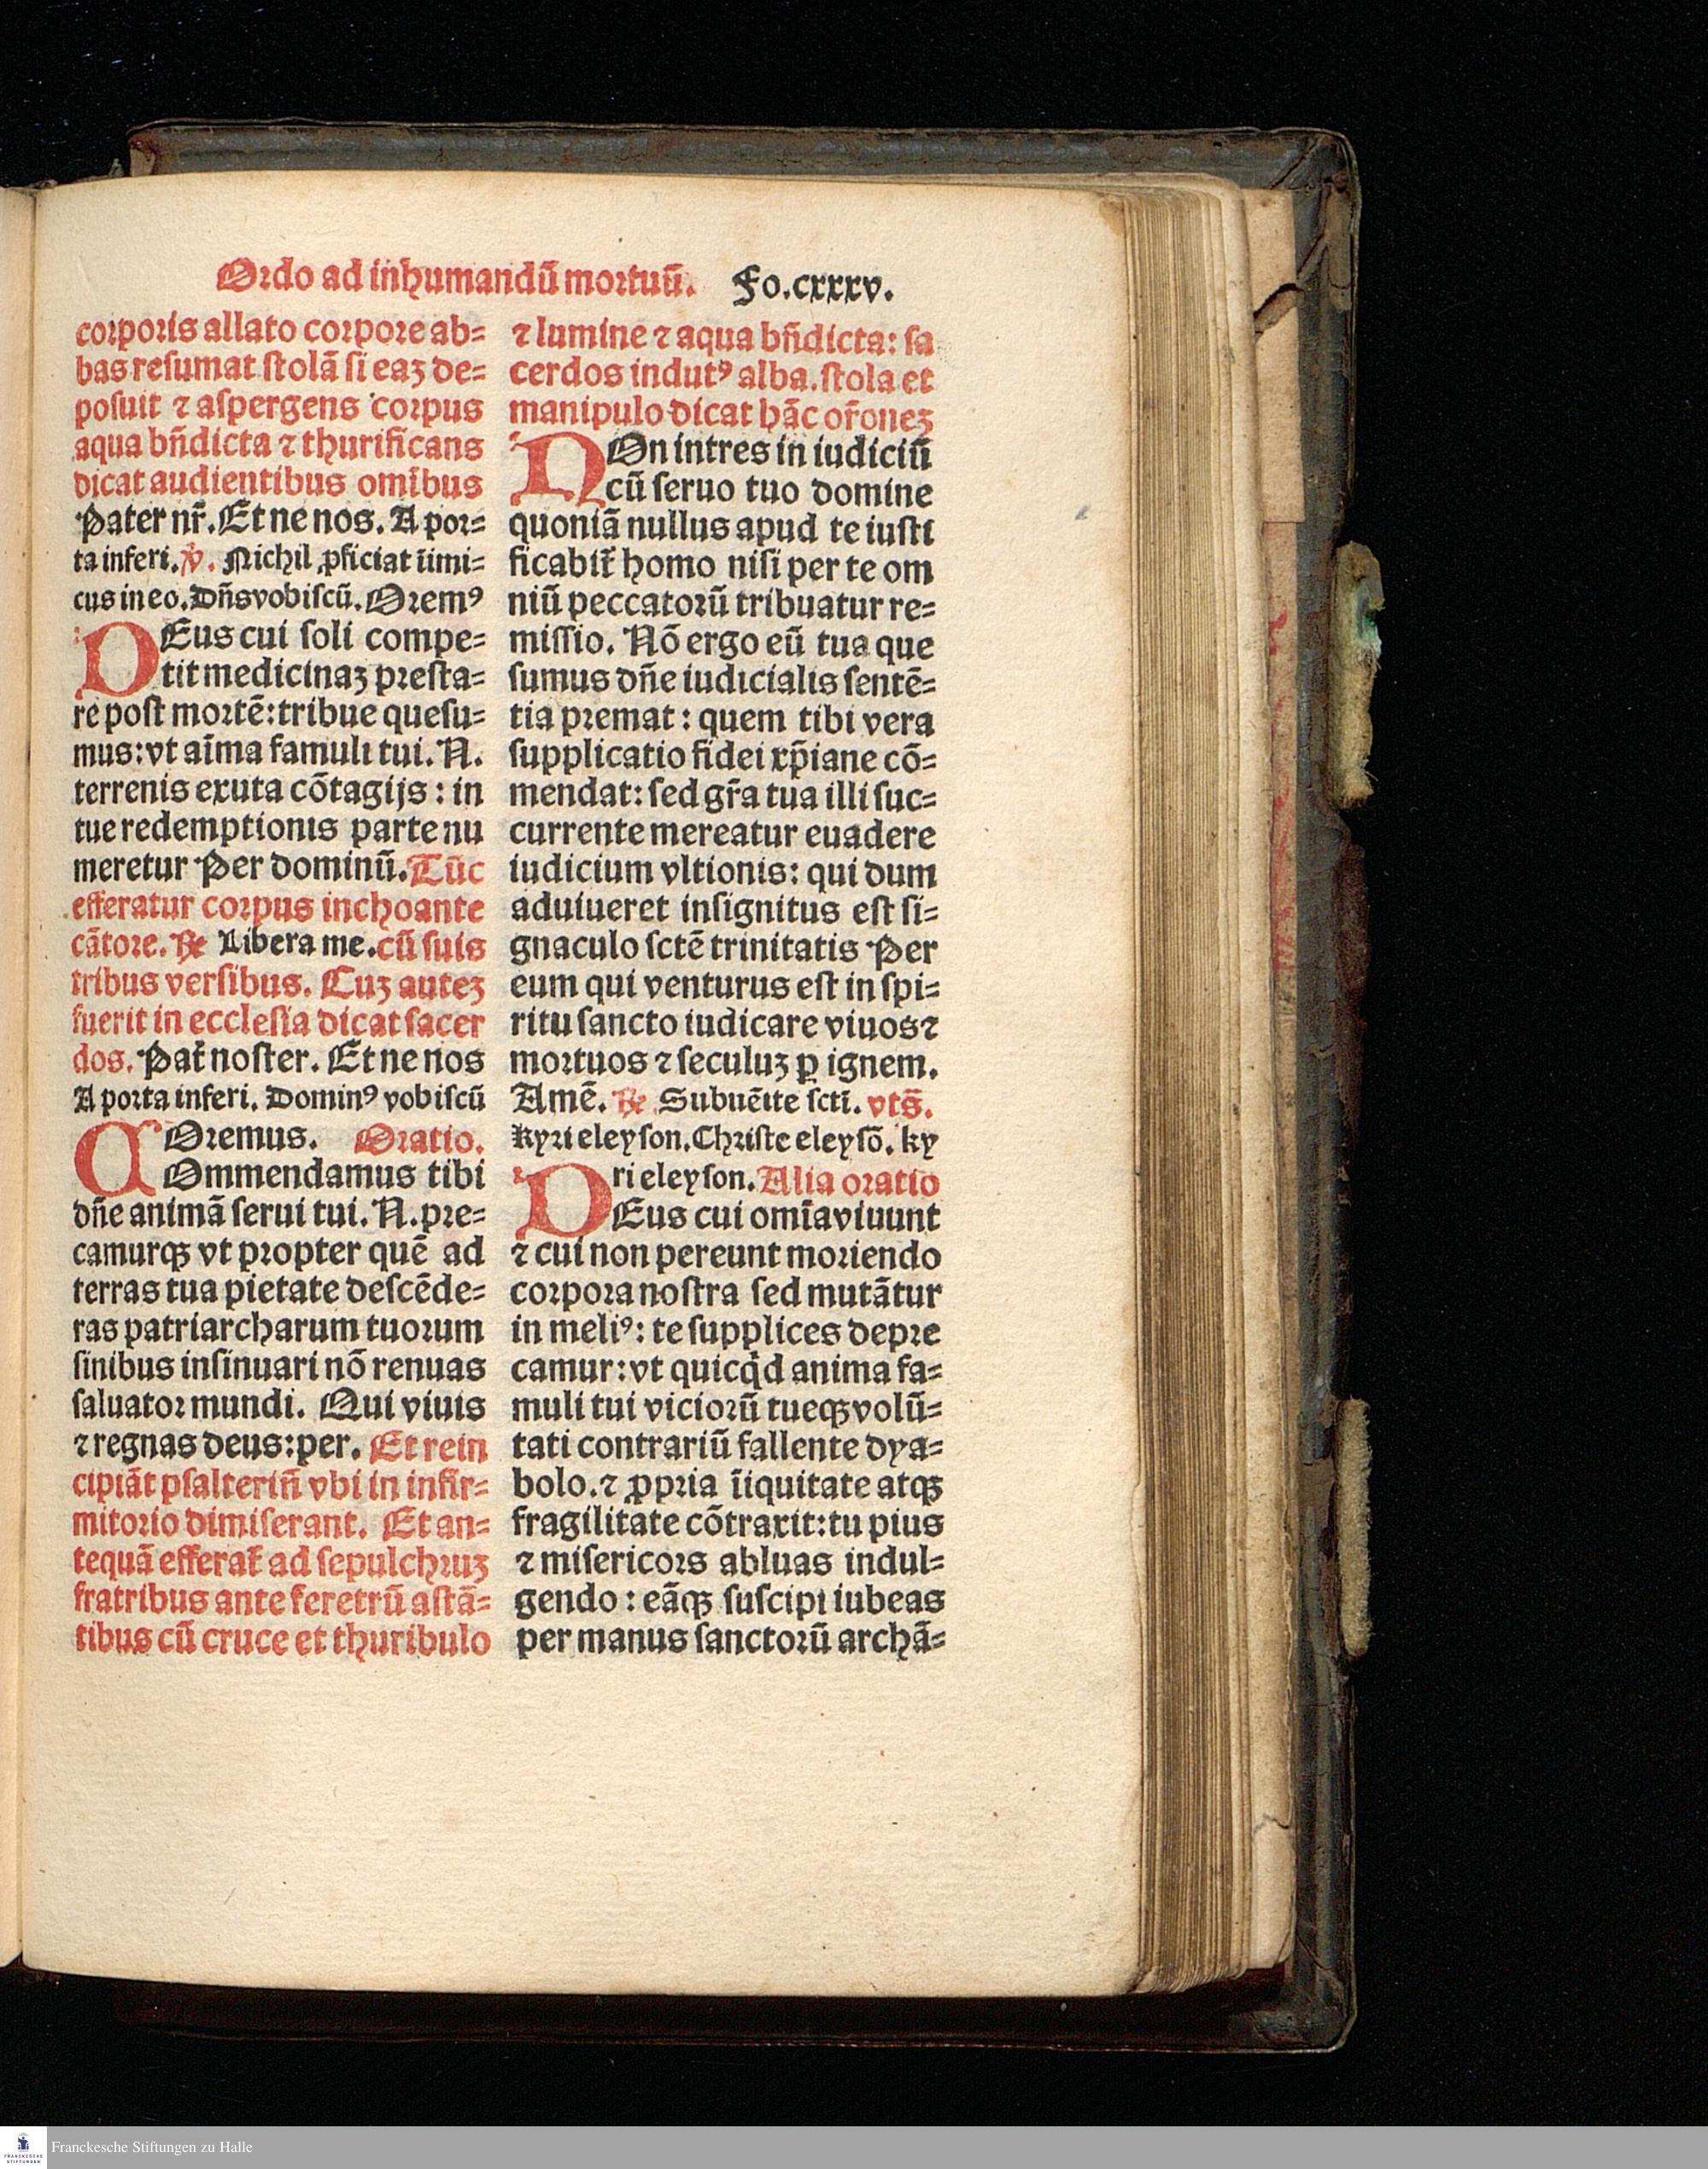 Ordo ad inhumandū mortuū. Fo.cxxxv.
corporis allato corpore ab=
bas resumat stolā si eaꝫ de=
posuit ⁊ aspergens corpus
aqua bn̄dicta ⁊ thurificans
dicat audientibus omībus
Pater nr̄. Et ne nos. A por=
ta inferi. ℣. Nichil ꝓficiat iīmi=
cus in eo. Dn̄s vobiscū. Oremꝰ
DEus cui soli compe=
tit medicinaꝫ presta=
re post mortē: tribue quesu=
mus: vt aīma famuli tui. N.
terrenis exuta cōtagijs: in
tue redemptionis parte nu
meretur Per dominū. Tūc
efferatur corpus inchoante
cātore. ℟ Libera me. cū suis
tribus versibus. Cuꝫ auteꝫ
fuerit in ecclesia dicat sacer
dos. Pat̄ noster. Et ne nos
A porta inferi. Dominꝰ vobiscū
Oremus. Oratio.
COmmendamus tibi
dn̄e animā serui tui. N. pre=
camurqꝫ vt propter quē ad
terras tua pietate descēde=
ras patriarcharum tuorum
sinibus insinuari nō renuas
saluator mundi. Qui viuis
⁊ regnas deus: per. Et rein
cipiāt psalteriū vbi in infir=
mitorio dimiserant. Et an=
tequā efferat̄ ad sepulchruꝫ
fratribus ante feretrū astā=
tibus cū cruce et thuribulo
⁊ lumine ⁊ aqua bn̄dicta: sa
cerdos indutꝰ alba. stola et
manipulo dicat hāc or̄oneꝫ
NOn intres in iudiciū
cū seruo tuo domine
quoniā nullus apud te iusti
ficabit̄ homo nisi per te om
niū peccatorū tribuatur re=
missio. Nō ergo eū tua que
sumus dn̄e iudicialis sentē=
tia premat: quem tibi vera
supplicatio fidei xp̄iane cō=
mendat: sed gr̄a tua illi suc=
currente mereatur euadere
iudicium vltionis: qui dum
adviueret insignitus est si=
gnaculo sctē trinitatis Per
eum qui venturus est in spi=
ritu sancto iudicare viuos ⁊
mortuos ⁊ seculuꝫ ꝑ ignem.
Amē. ℟ Subuēite sctī. vts̄.
kyri eleyson. Christe eleysō. ky
ri eleyson. Alia oratio
DEus cui omīa viuunt
⁊ cui non pereunt moriendo
corpora nostra sed mutātur
in meliꝰ: te supplices depre
camur: vt quicqͥd anima fa=
muli tui viciorū tueqꝫ volū=
tati contrariū fallente dya=
bolo. ⁊ ꝓpria iīquitate atqꝫ
fragilitate cōtraxit: tu pius
⁊ misericors abluas indul=
gendo: eāqꝫ suscipi iubeas
per manus sanctorū archā=
Franckesche Stiftungen zu Halle
FRANCKESCHE
STIFTUNGEN